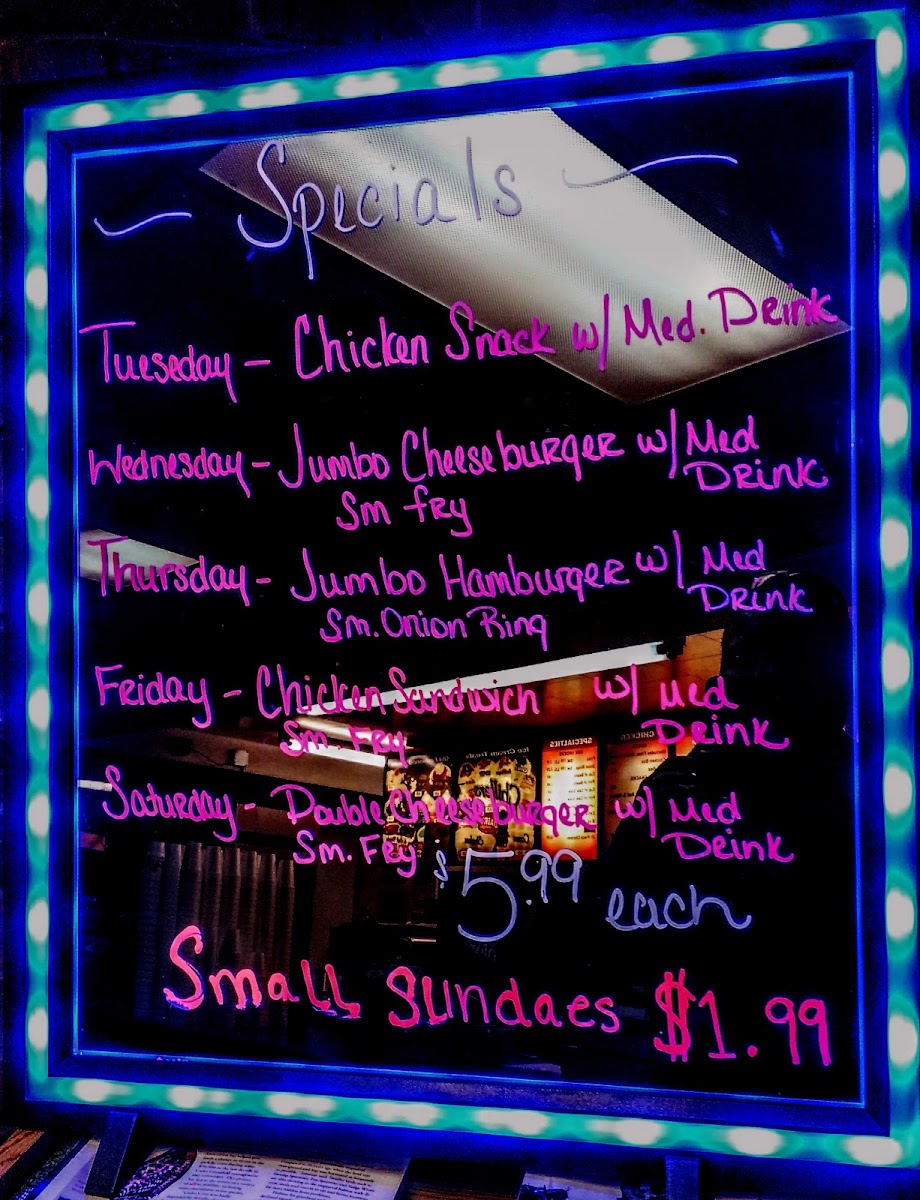 Specials
Tueseday - Chicken Snack w/ Med. Drink
Wednesday - Jumbo Cheeseburger w/ Med
Drink
Sm fry
Thursday - Jumbo Hamburger w/ Med
Drink
Sm. Onion Ring
Friday - Chicken Sandwich w/ Med
Drink
Sm. Fry
Saturday - Double Cheeseburger w/ Med
Drink
Sm. Fry
$5.99 each
Small Sundaes $1.99
SPECIALTIES
CHICKEN
Ice Cream Treats